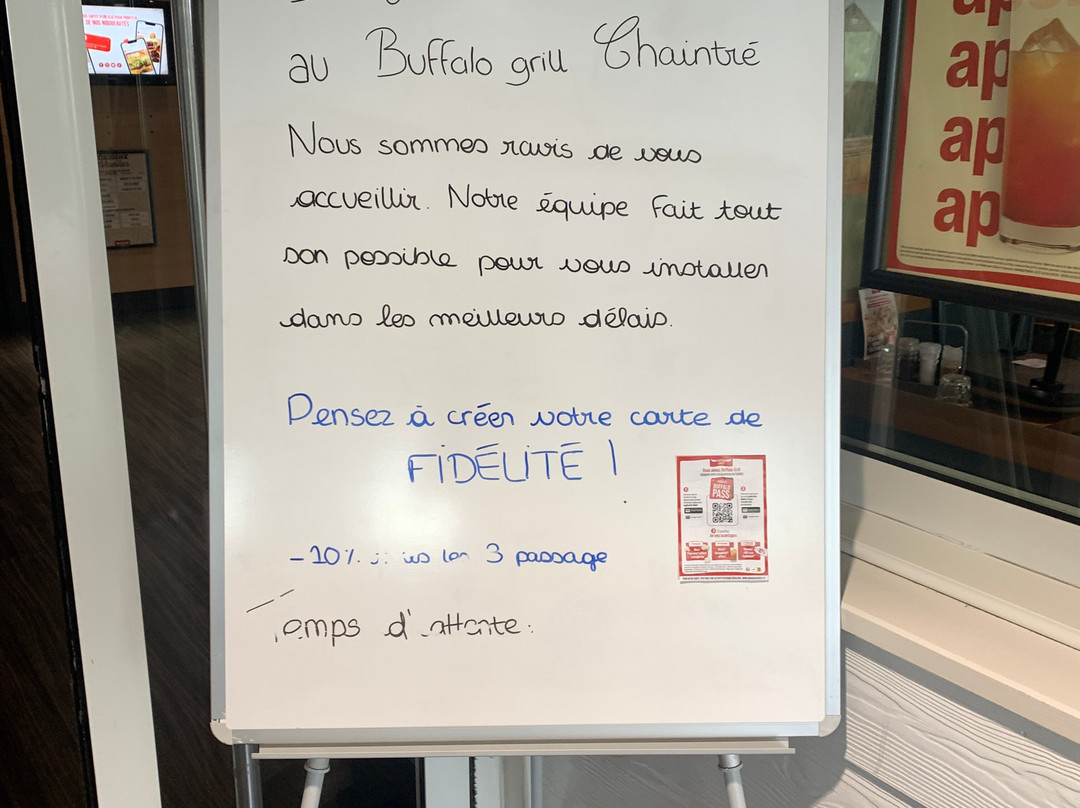 au Buffalo grill Chaintré
Nous sommes ravis de vous
accueillir. Notre équipe fait tout
son possible pour vous installer
dans les meilleurs délais.
Pensez à créer votre carte de
FIDÉLITÉ !
-10% les 3 passage
Temps d'attente :
BUFFALO
PASS
DE NOS NOUVEAUTÉS
ap
ap
ap
ap